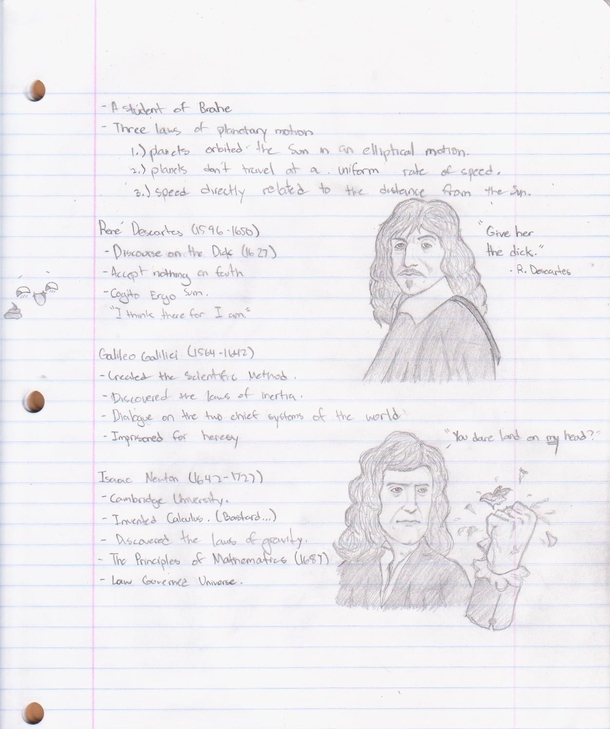 - A student of Brahe
- Three laws of planetary motion
1.) planets orbited the Sun in an elliptical motion.
2.) planets don't travel at a uniform rate of speed.
3.) speed directly related to the distance from the Sun.
René Descartes (1596-1650)
- Discourse on the Dick (1627)
- Accept nothing on faith
- Cogito Ergo Sum.
"I think there for I am"
"Give her
the dick."
- R. Descartes
Galileo Galiliei (1564-1642)
- Created the Scientific Method.
- Discovered the laws of inertia.
- Dialogue on the two chief systems of the world.
- Imprisoned for heresy
"You dare land on my head?"
Isaac Newton (1642-1727)
- Cambridge University.
- Invented Calculus. (Bastard...)
- Discovered the laws of gravity.
- The Principles of Mathematics (1687)
- Law Governez Universe.